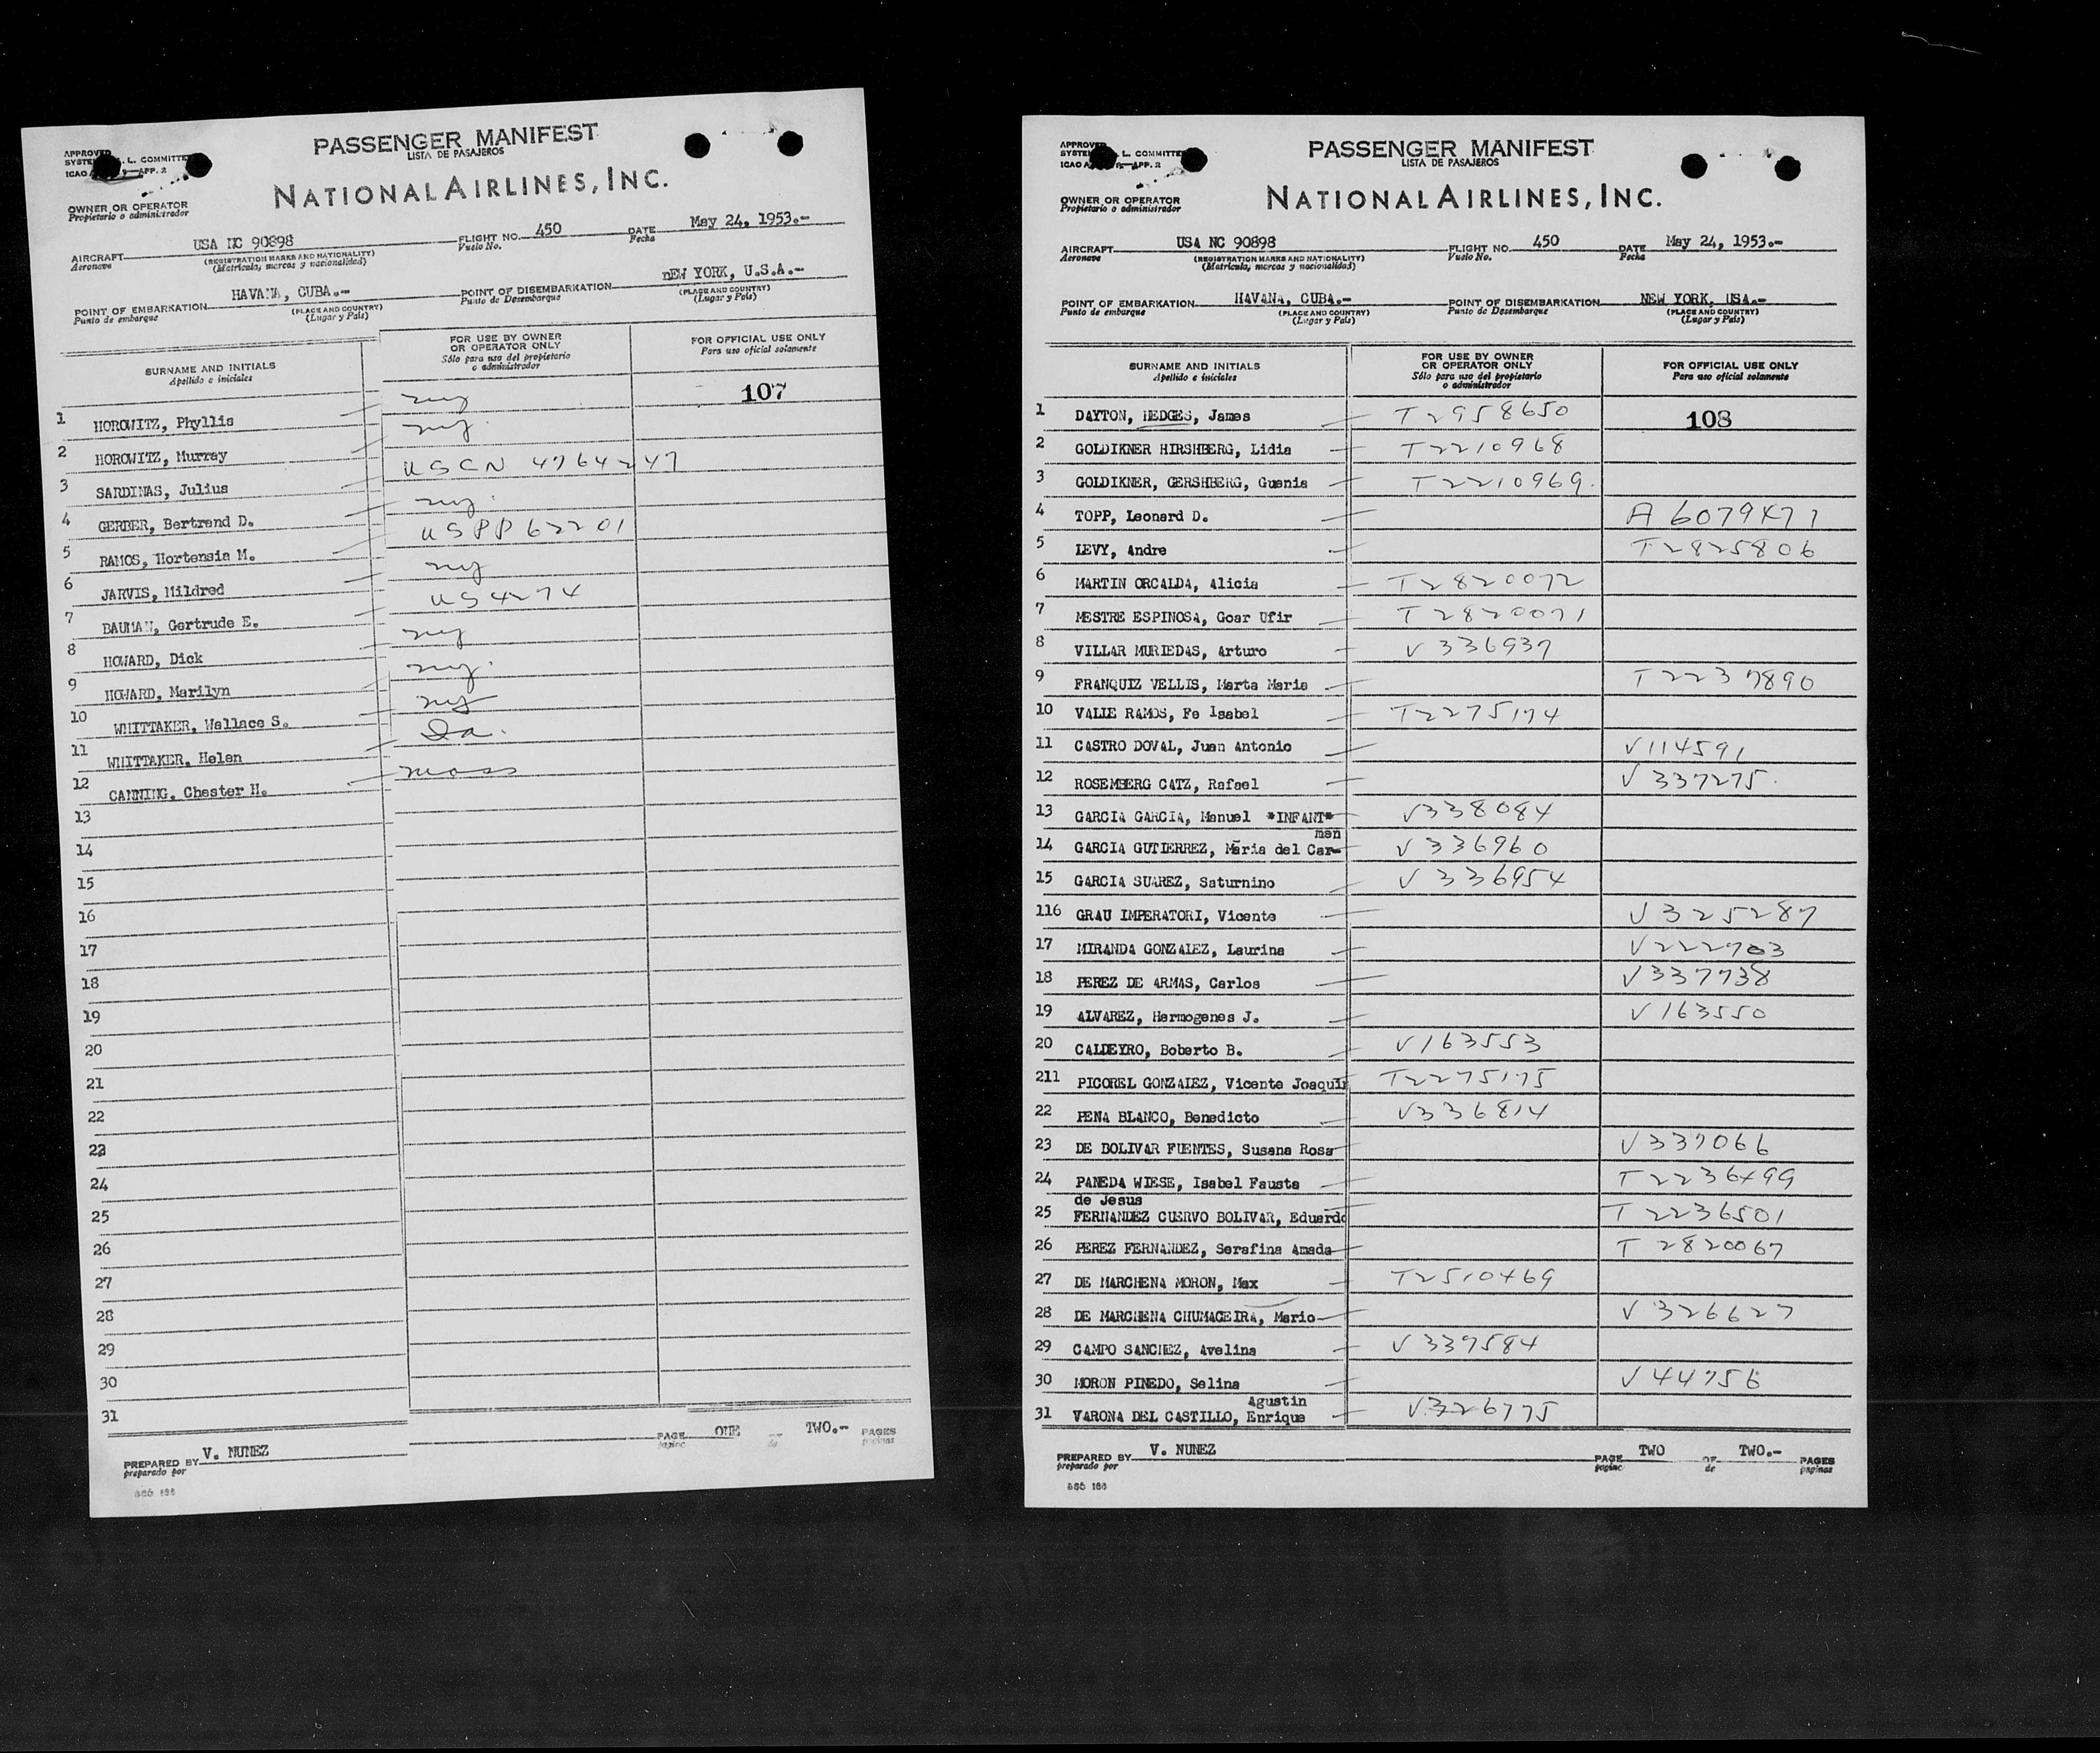 APPROVED
SYSTEM L. COMMITTEE
ICAO APP. 2
PASSENGER MANIFEST
LISTA DE PASAJEROS
NATIONAL AIRLINES, INC.
OWNER OR OPERATOR
Propietario o administrador
AIRCRAFT USA NC 90898 FLIGHT NO. 450 DATE May 24, 1953.-
Aeronave (REGISTRATION MARKS AND NATIONALITY) Vuelo No. Fecha
(Matricula, marcas y nacionalidad)
POINT OF EMBARKATION HAVANA, CUBA.- POINT OF DISEMBARKATION nEW YORK, U.S.A.-
Punto de embarque (PLACE AND COUNTRY) Punto de Desembarque (PLACE AND COUNTRY)
(Lugar y País) (Lugar y País)
SURNAME AND INITIALS FOR USE BY OWNER OR OPERATOR ONLY FOR OFFICIAL USE ONLY
Apellido e iniciales Sólo para uso del propietario o administrador Para uso oficial solamente
107
1 HOROWITZ, Phyllis ny
2 HOROWITZ, Murray ny.
3 SARDINAS, Julius USCN 4764247
4 GERBER, Bertrand D. ny.
5 RAMOS, Hortensia M. USPP 62201
6 JARVIS, Mildred ny
7 BAUMAN, Gertrude E. US 4274
8 HOWARD, Dick ny
9 HOWARD, Marilyn ny.
10 WHITTAKER, Wallace S. ny
11 WHITTAKER, Helen
12 CANNING, Chester H. mass
13
14
15
16
17
18
19
20
21
22
23
24
25
26
27
28
29
30
31
PREPARED BY V. NUNEZ PAGE ONE TWO.- PAGES
preparado por pagina paginas
APPROVED
SYSTEM L. COMMITTEE
ICAO APP. 2
PASSENGER MANIFEST
LISTA DE PASAJEROS
NATIONAL AIRLINES, INC.
OWNER OR OPERATOR
Propietario o administrador
AIRCRAFT USA NC 90898 FLIGHT NO. 450 DATE May 24, 1953.-
Aeronave (REGISTRATION MARKS AND NATIONALITY) Vuelo No. Fecha
(Matricula, marcas y nacionalidad)
POINT OF EMBARKATION HAVANA, CUBA.- POINT OF DISEMBARKATION NEW YORK, USA.-
Punto de embarque (PLACE AND COUNTRY) Punto de Desembarque (PLACE AND COUNTRY)
(Lugar y País) (Lugar y País)
SURNAME AND INITIALS FOR USE BY OWNER OR OPERATOR ONLY FOR OFFICIAL USE ONLY
Apellido e iniciales Sólo para uso del propietario o administrador Para uso oficial solamente
1 DAYTON, HEDGES, James T2958650 108
2 GOLDIKNER HIRSHBERG, Lidia T2210968
3 GOLDIKNER, GERSHBERG, Guenia T2210969.
4 TOPP, Leonard D. A 6079471
5 LEVY, Andre T2825806
6 MARTIN ORCALDA, Alicia T2820072
7 MESTRE ESPINOSA, Goar Ufir T2820071
8 VILLAR MURIEDAS, Arturo V 336937
9 FRANQUIZ VELLIS, Marta Maria T2237890
10 VALLE RAMOS, Fe Isabel T2275174
11 CASTRO DOVAL, Juan Antonio V114591
12 ROSEMBERG CATZ, Rafael V 337275.
13 GARCIA GARCIA, Manuel *INFANT* V338084
men
14 GARCIA GUTIERREZ, Maria del Car- V 336960
15 GARCIA SUAREZ, Saturnino V 336954
116 GRAU IMPERATORI, Vicente V 325287
17 MIRANDA GONZALEZ, Laurina V222703
18 PEREZ DE ARMAS, Carlos V337738
19 ALVAREZ, Hermogenes J. V 163550
20 CALDEYRO, Boberto B. V163553
211 PICOREL GONZALEZ, Vicente Joaquin T2275175
22 PENA BLANCO, Benedicto V336814
23 DE BOLIVAR FUENTES, Susana Rosa V337066
24 PANEDA WIESE, Isabel Fausta T2236499
de Jesus
25 FERNANDEZ CUERVO BOLIVAR, Eduardo T2236501
26 PEREZ FERNANDEZ, Serafina Amada T 2820067
27 DE MARCHENA MORON, Max T2510469
28 DE MARCHENA CHUMACEIRA, Mario V 326627
29 CAMPO SANCHEZ, Avelina V 337584
30 MORON PINEDO, Selina V 44756
Agustin
31 VARONA DEL CASTILLO, Enrique V326775
PREPARED BY V. NUNEZ PAGE TWO OF TWO.- PAGES
preparado por pagina de paginas